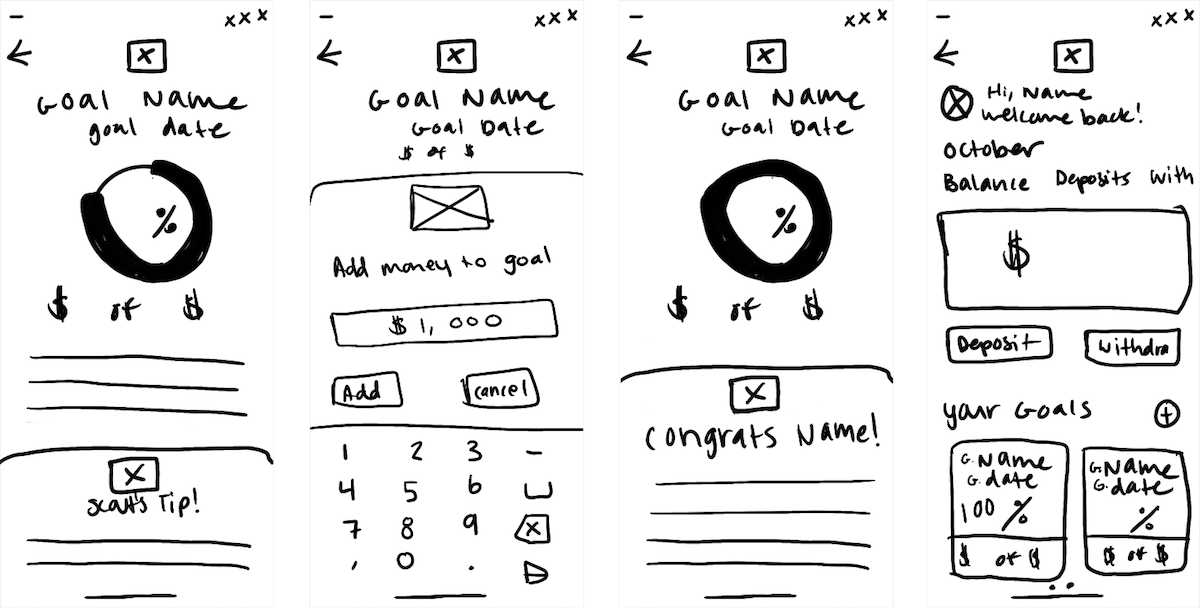 x x x
x
Goal Name
goal date
%
$ of $
x
Scott's Tip!
x x x
x
Goal Name
Goal Date
$ of $
Add money to goal
$ 1,000
Add Cancel
1 2 3 -
4 5 6
7 8 9 x
, 0 .
x x x
x
Goal Name
Goal Date
%
$ of $
x
Congrats Name!
x x x
x
Hi, Name
welcome back!
October
Balance Deposits With
$
Deposit Withdra
your Goals +
G. Name
G. date
100 %
$ of $
G. Name
G. date
%
$ of $